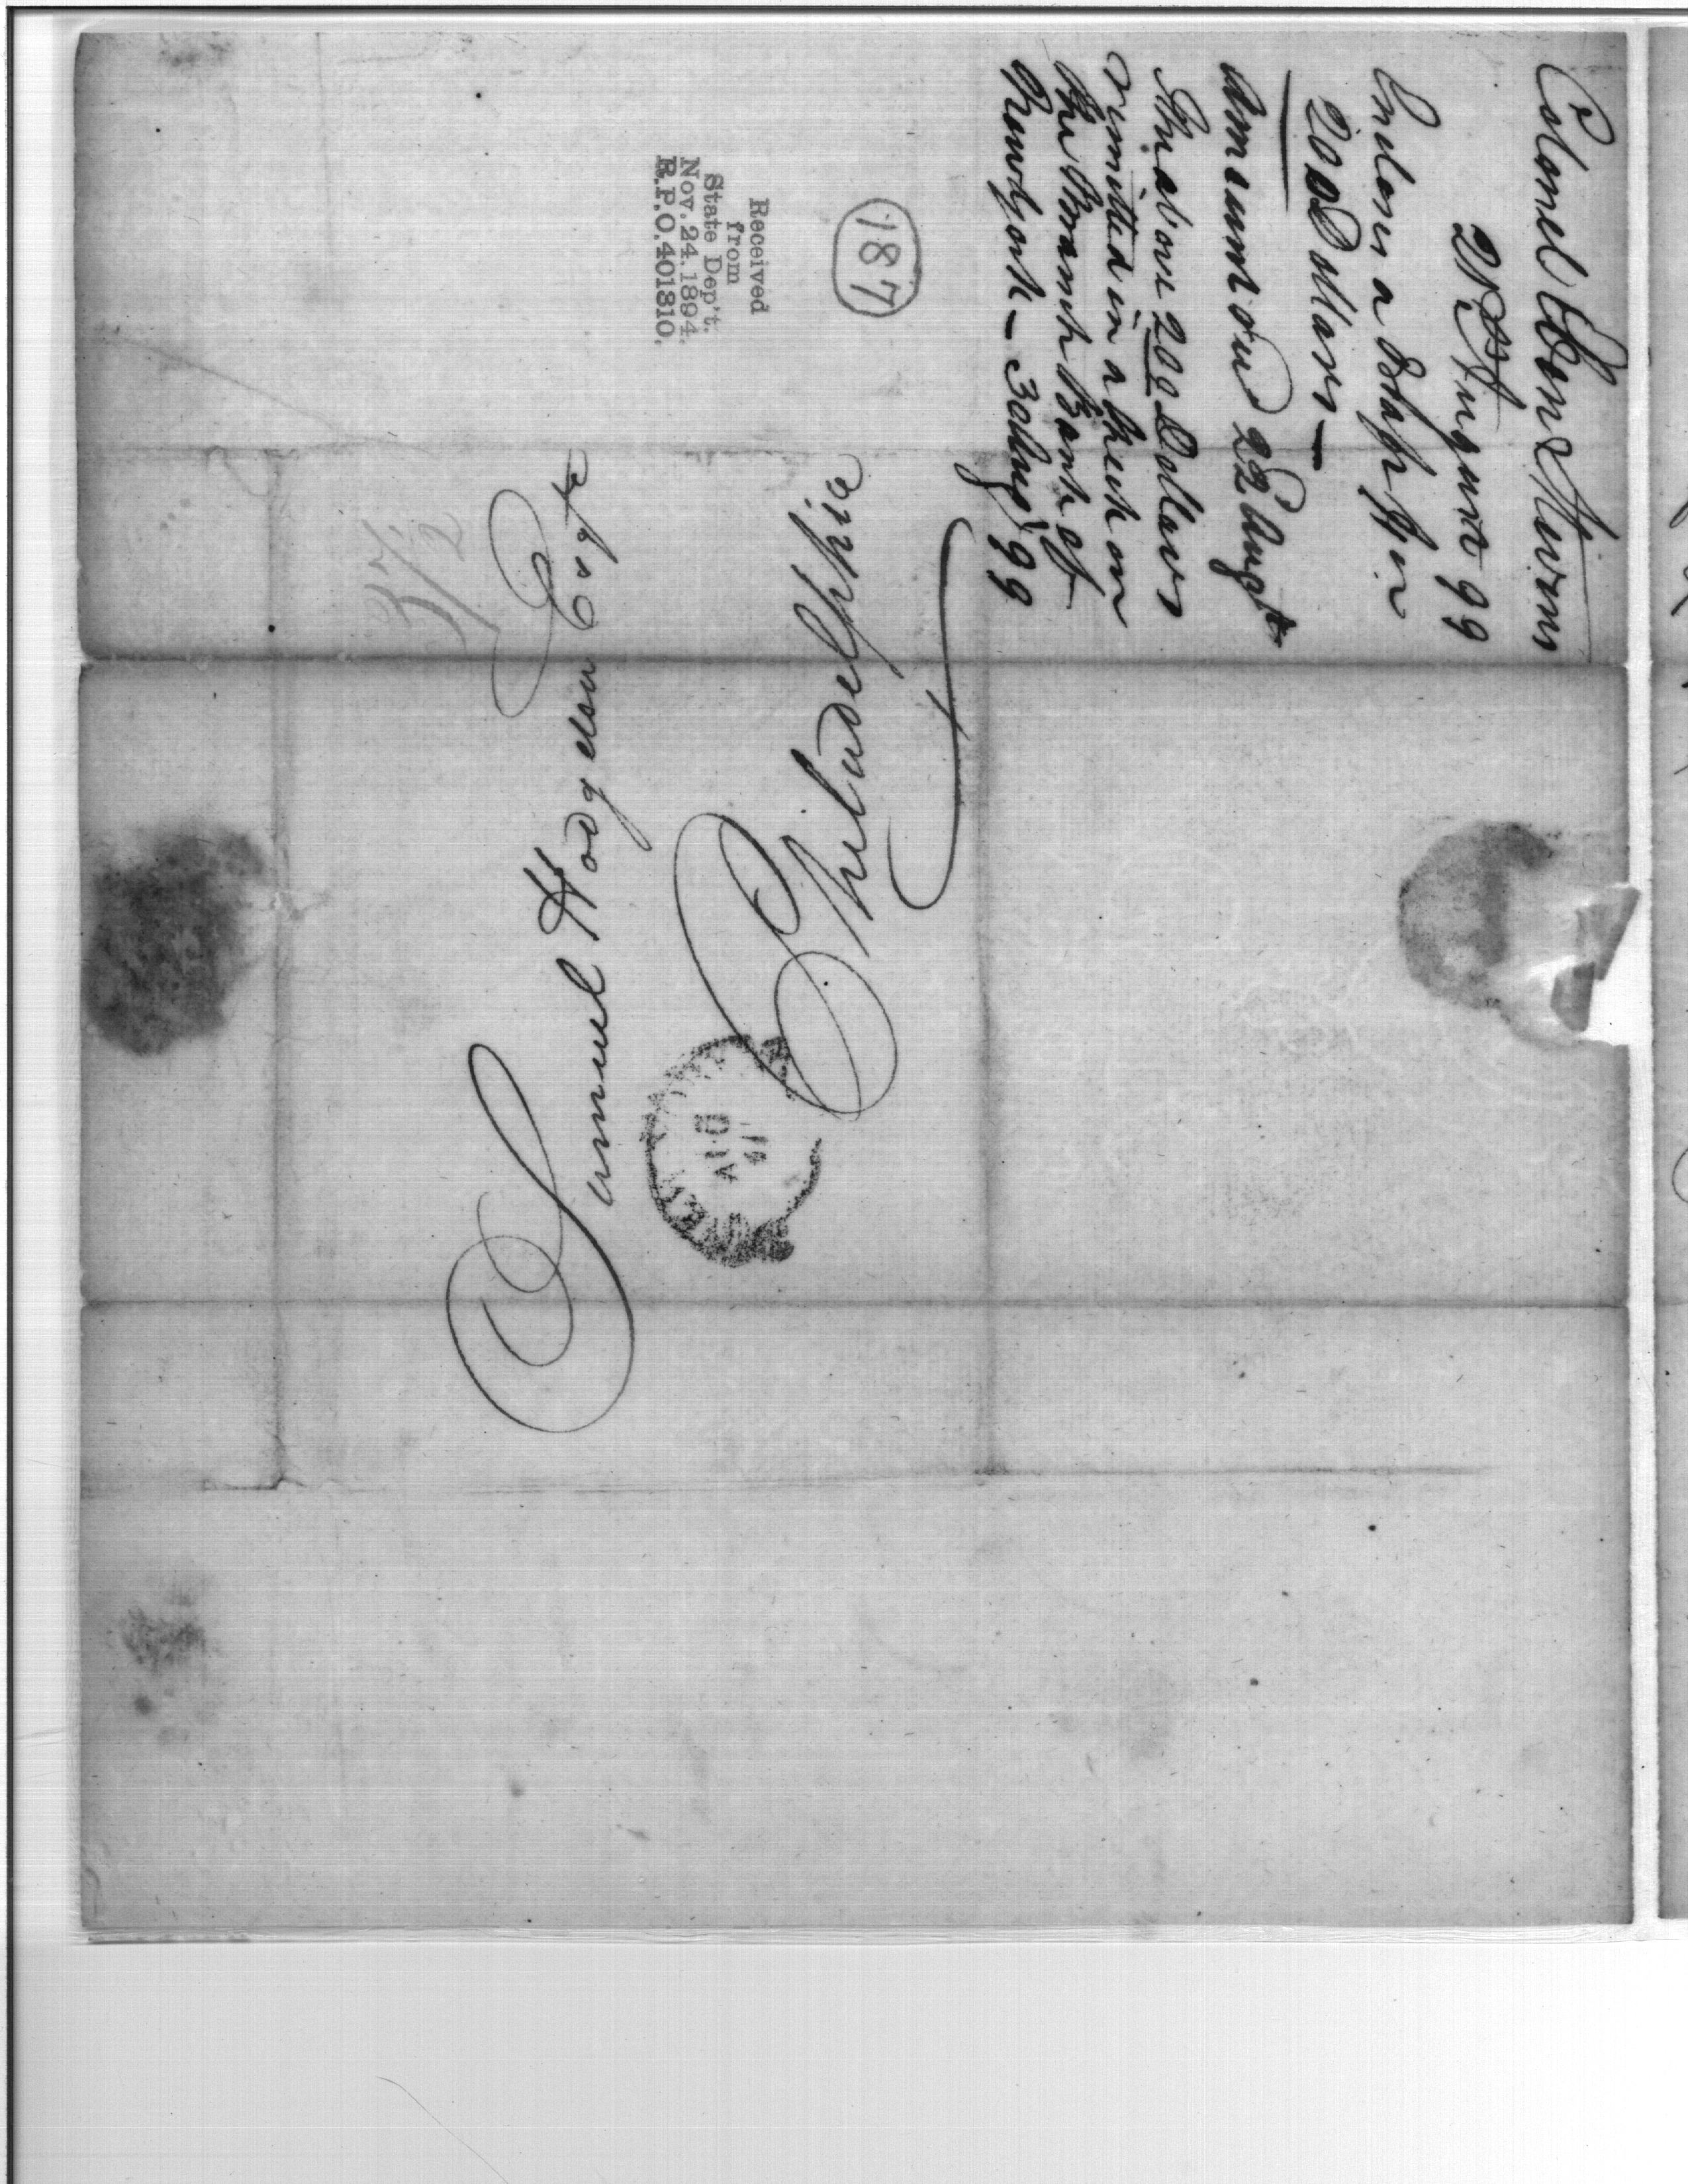 Colonel Eben Stevens
21st August 99
Incloses a Draft for
200 Dollars —
Answered 22d Augt
The above 200 Dollars
remitted in a Check on
the Branch Bank of
New york — 30 Aug 99
187
Received
from
State Dep't.
Nov. 24. 1894.
R.P.O. 401310.
Samuel Hodgdon Esqr
Philadelphia
AUG